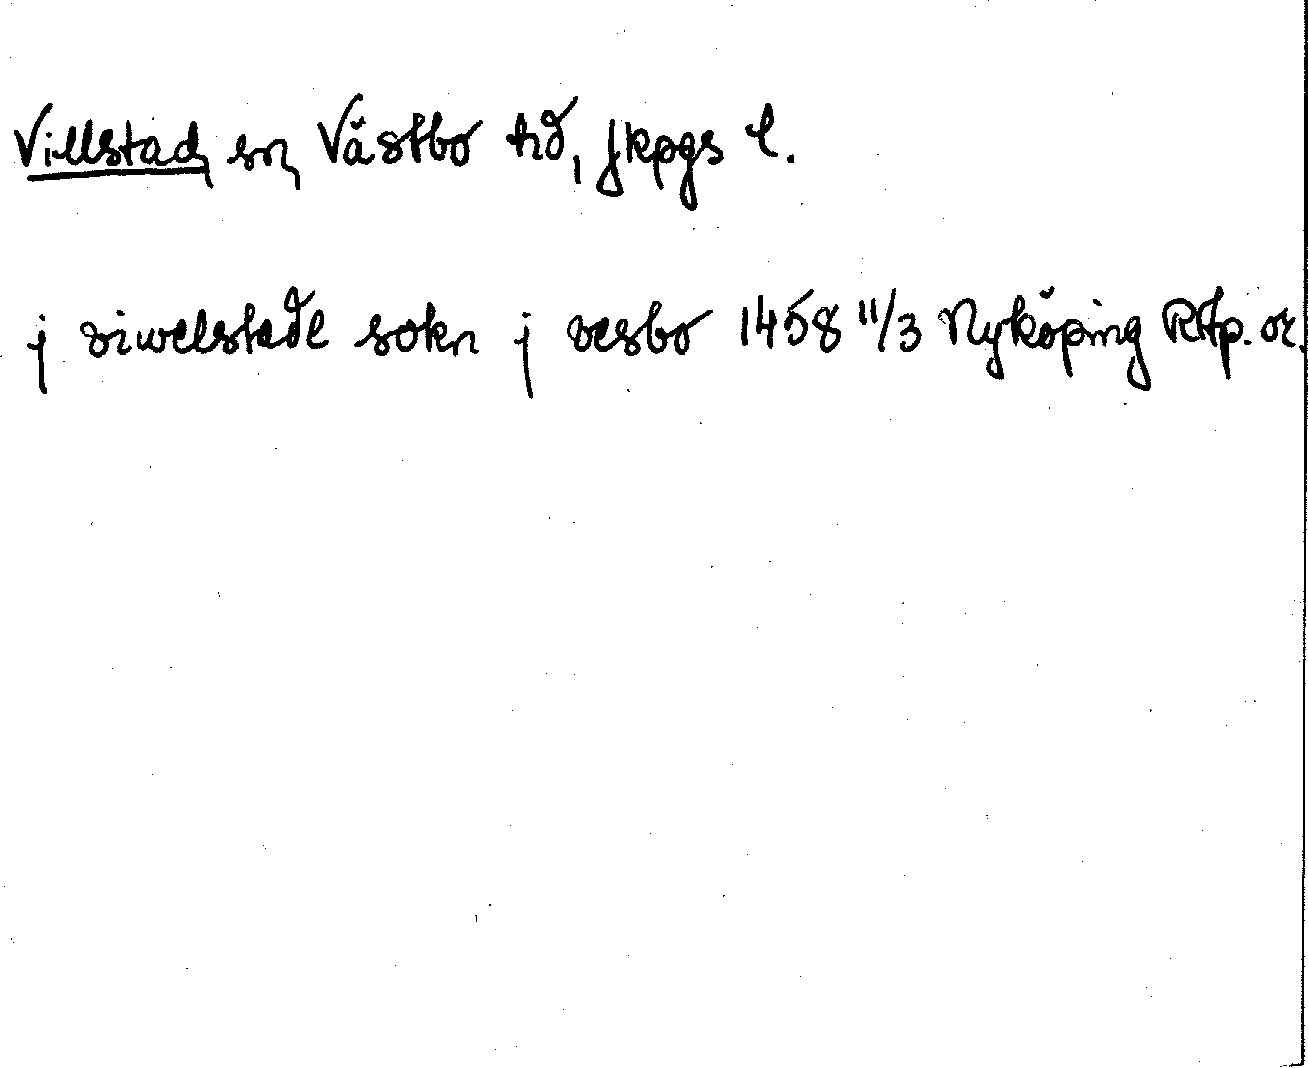 Villstad, sn, Västbo hd, Jkpgs l.
j viwelstade sokn j vesbo 1458 11/3 Nyköping RAp. or.